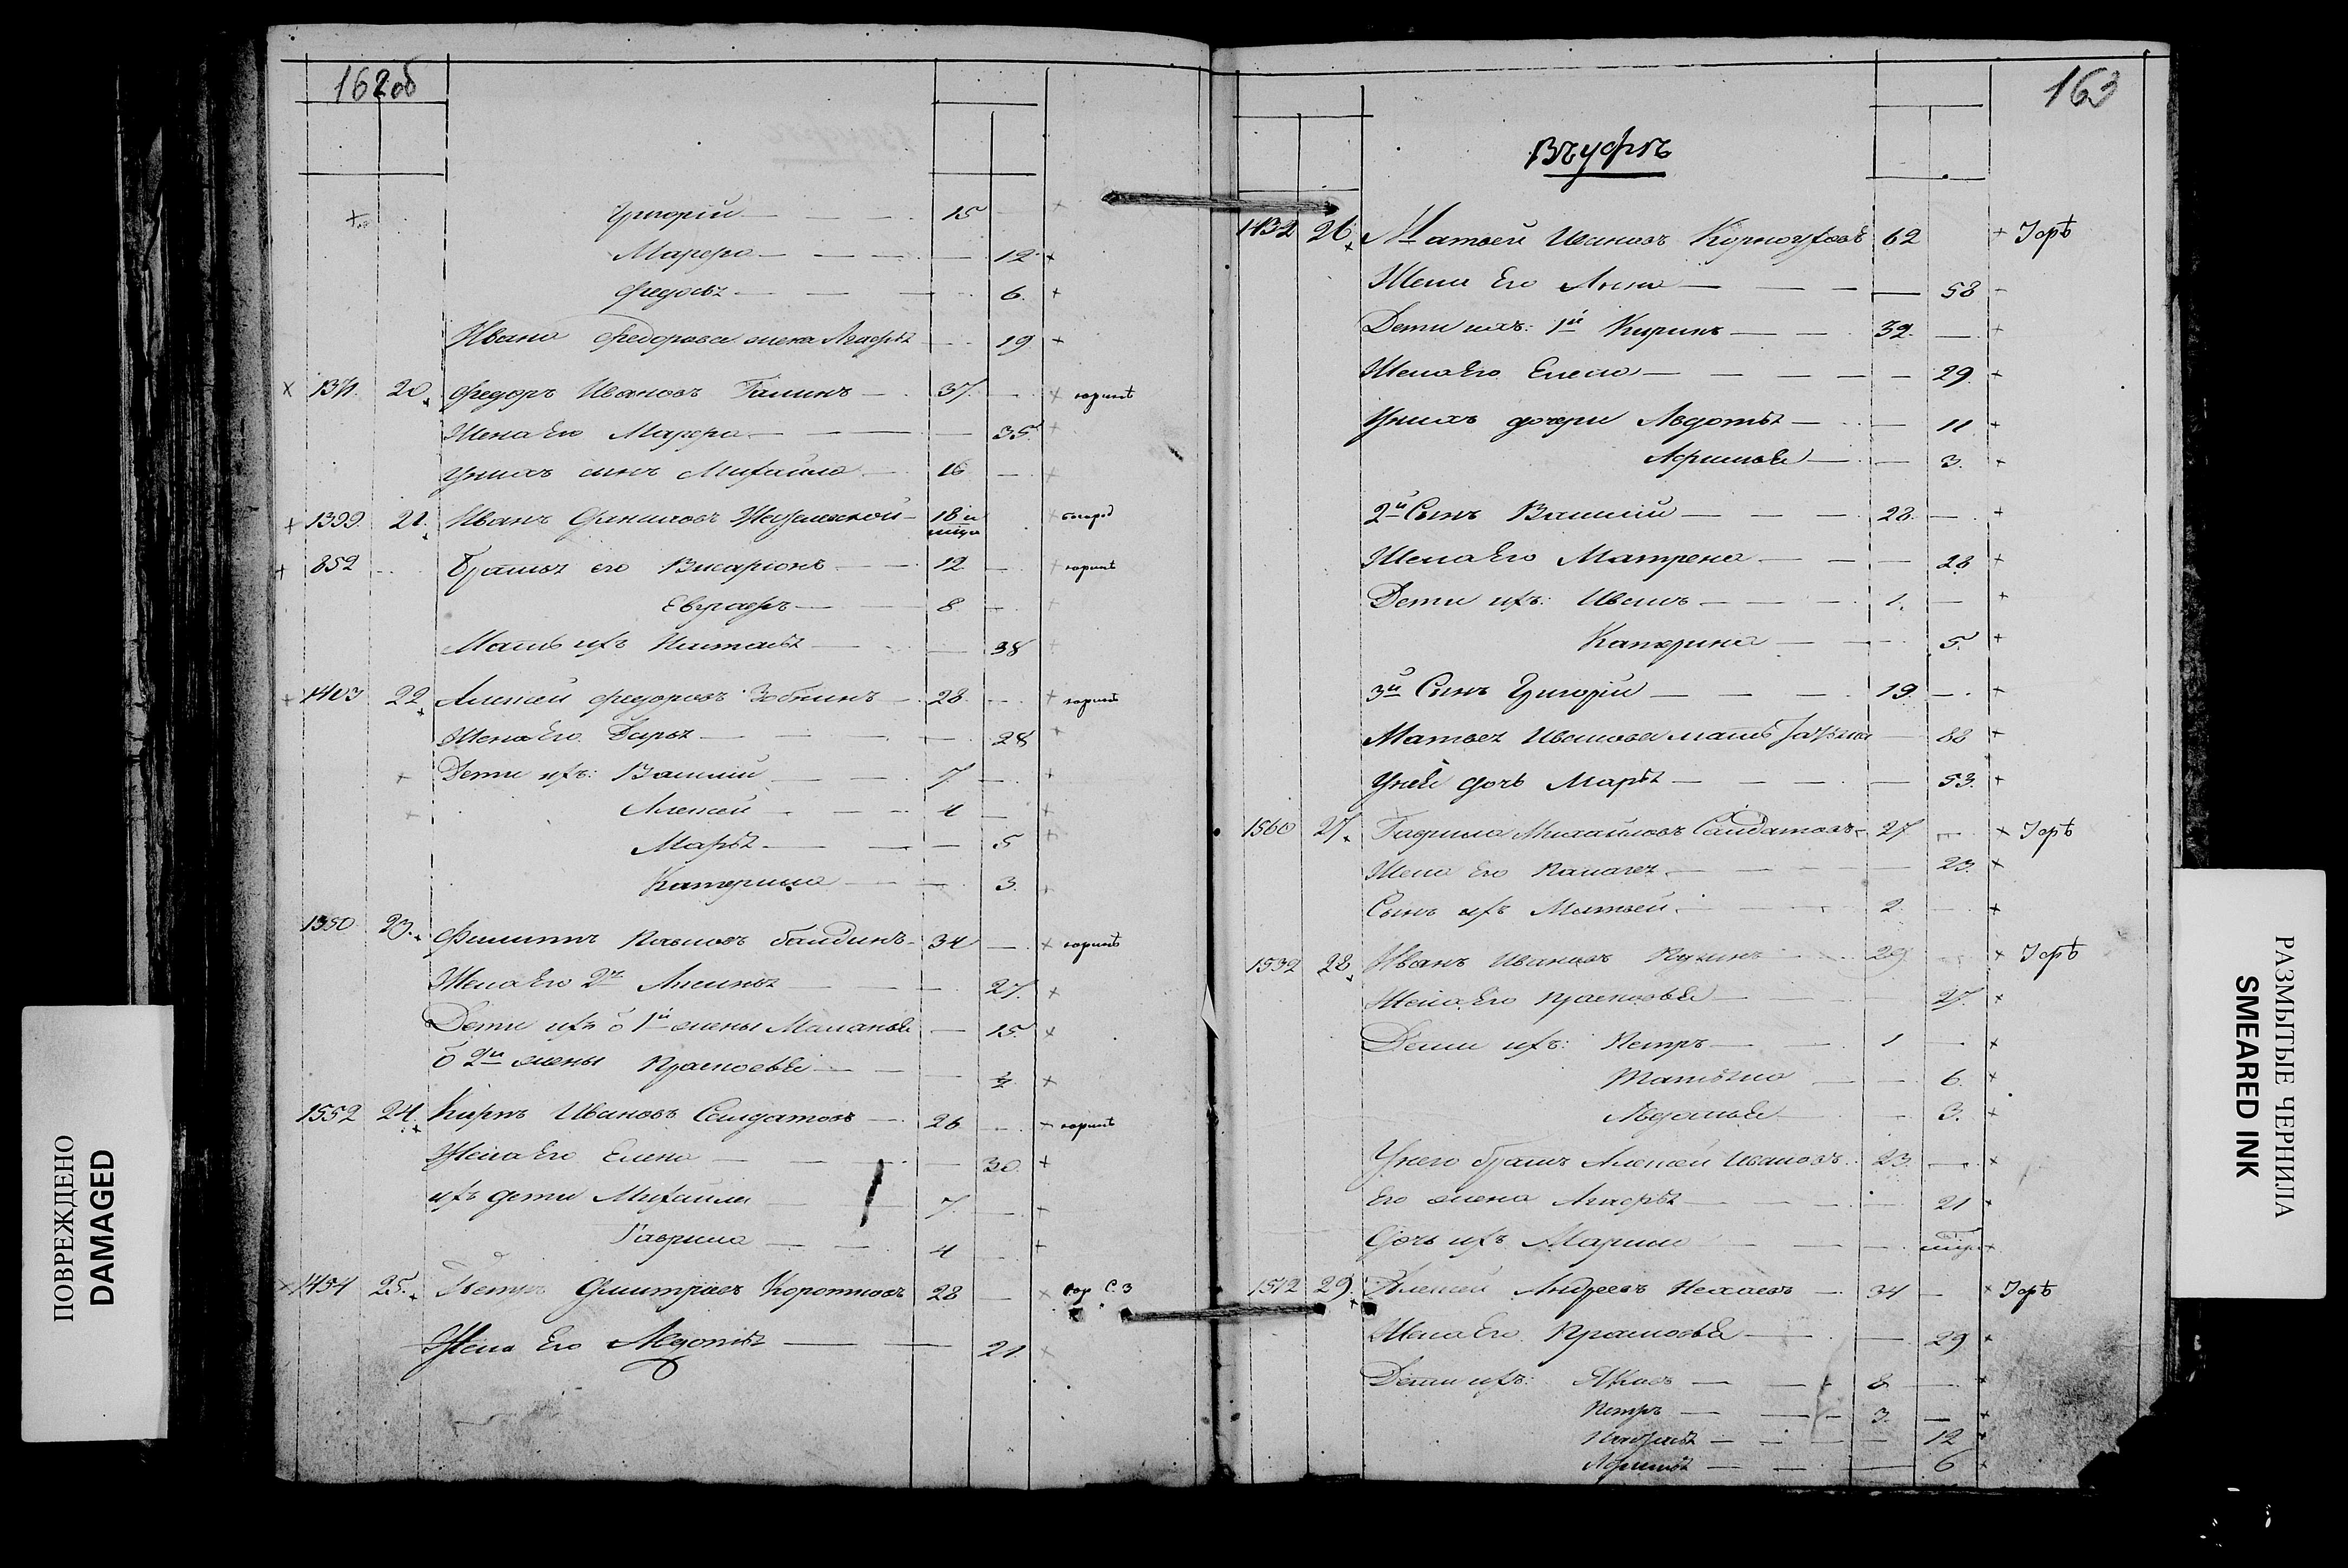 162 об
Григорій 15
Марфа 12
Федосья 6
Ивана Федорова жена Агафья 19
1371 20 Федоръ Ивановъ Галинъ 37
Жена Его Марфа 35
У нихъ сынъ Михайла 16
1399 21 Иванъ Даниловъ 18 и
852 Братья его Висаріонъ 12
Евграфъ 8
Мать ихъ Наталья 38
1403 22 Алексей Федоровъ Зобнинъ 28
Жена Его Дарья 28
Дети ихъ: Василий 7
Алексей 4
Марья 5
Катерина 3
1350 23 Филиппъ Павловъ 34
Жена Его 2я Аксинья 27
Дети ихъ о 1й жены Маланья 15
о 2й жены Прасковья
1552 24 Карпъ Ивановъ Салдатовъ 26
Жена Его Елена 30
ихъ дети Михайла 7
Гаврила 4
1434 25 Петръ Дмитріевъ Коротковъ 28
Жена Его Авдотья 21
163
Въ Уфѣ
1432 26 Матвей Ивановъ Курноуховъ 62 Уфѣ
Жена Его Анна 58
Дети ихъ: 1й 32
Жена Его Елена 29
У нихъ дочери Авдотья 11
Афимья 3
2й Сынъ Василий 28
Жена Его Матрена 28
Дети ихъ: Иванъ 1
Катерина 5
3й Сынъ Григорій 19
Матвея Иванова мать 88
У ней дочь Марья 53
1560 27 Гаврила Михайловъ Салдатовъ 27 Уфѣ
Жена Его Палагея 23
Сынъ ихъ Матвей 2
1532 28 Иванъ Ивановъ 29 Уфѣ
Жена Его Прасковья 27
Дети ихъ: Петръ 1
Татьяна 6
Авдотья 3
У него братъ Алексей Ивановъ 23
Его жена Агафья 21
Дочь ихъ Марина
1512 29 Алексей Андреевъ Нехаевъ 34 Уфѣ
Жена Его Прасковья 29
Дети ихъ: Яковъ 8
Петръ 3
12
Афимья 6
ПОВРЕЖДЕНО
DAMAGED
РАЗМЫТЫЕ ЧЕРНИЛА
SMEARED INK